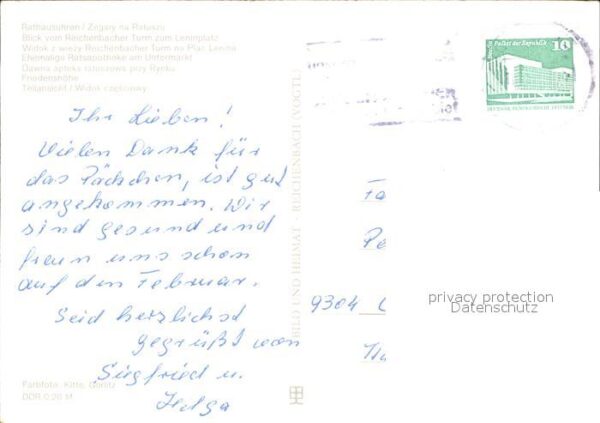 Rathausuhren / Zegary na Ratuszu
Blick vom Reichenbacher Turm zum Leninplatz
Widok z wieży Reichenbacher Turm na Plac Lenina
Ehemalige Ratsapotheke am Untermarkt
Dawna apteka ratuszowa przy Rynku
Friedenshöhe
Teilansicht / Widok częściowy
Ihr Lieben!
Vielen Dank für
das Päckchen, ist gut
angekommen. Wir
sind gesund und
freuen uns schon
auf den Februar.
Seid herzlichst
gegrüßt von
Siegfried u.
Helga
Farbfoto: Kitte, Görlitz
DDR 0,20 M
BILD UND HEIMAT · REICHENBACH (VOGTL)
Palast der Republik
10
Fa
Pe
9304
privacy protection
Datenschutz